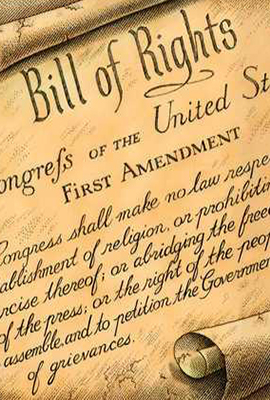 Bill of Rights
ongreſs OF THE United St
FIRST AMENDMENT
Congress shall make no law respe
ablishment of religion, or prohibitin
rcise thereof; or abridging the free
of the press; or the right of the peop
assemble, and to petition the Government
of grievances.